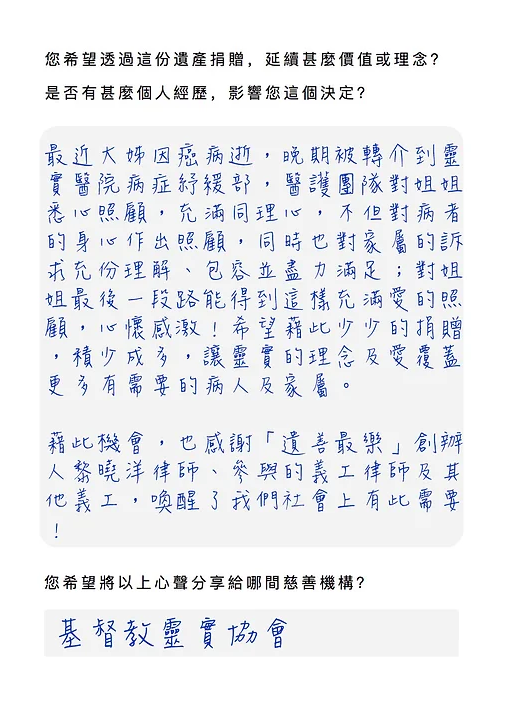 您希望透過這份遺產捐贈，延續甚麼價值或理念？
是否有甚麼個人經歷，影響您這個決定？
最近大姊因癌病逝，晚期被轉介到靈
實醫院病症紓緩部，醫護團隊對姐姐
悉心照顧，充滿同理心，不但對病者
的身心作出照顧，同時也對家屬的訴
求充份理解、包容並盡力滿足；對姐
姐最後一段路能得到這樣充滿愛的照
顧，心懷感激！希望藉此少少的捐贈
，積少成多，讓靈實的理念及愛覆蓋
更多有需要的病人及家屬。
藉此機會，也感謝「遺善最樂」創辦
人黎曉洋律師、參與的義工律師及其
他義工，喚醒了我們社會上有此需要
！
您希望將以上心聲分享給哪間慈善機構？
基督教靈實協會